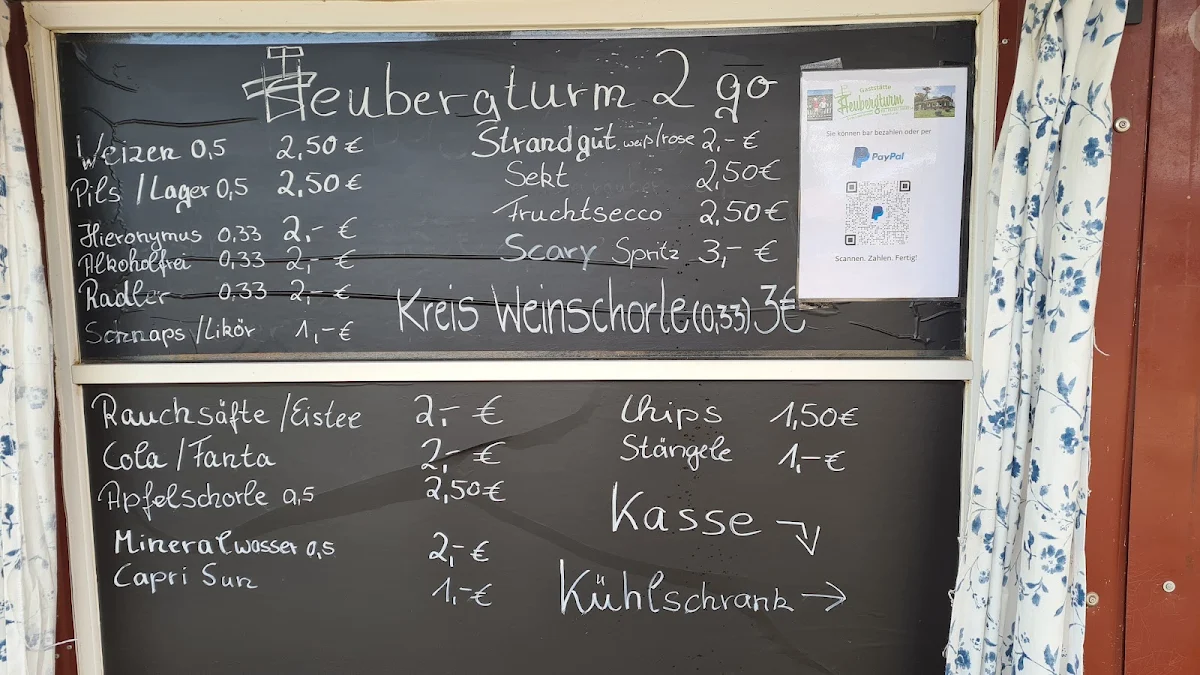 Heubergturm 2 go
Weizen 0,5 2,50 €
Pils / Lager 0,5 2,50 €
Hieronymus 0,33 2,- €
Alkoholfrei 0,33 2,- €
Radler 0,33 2,- €
Schnaps / Likör 1,- €
Strandgut weiß/rose 2,- €
Sekt 2,50 €
Fruchtsecco 2,50 €
Scary Spritz 3,- €
Kreis Weinschorle (0,33) 3 €
Gaststätte
Heubergturm
Sie können bar bezahlen oder per
PayPal
Scannen. Zahlen. Fertig!
Rauchsäfte / Eistee 2,- €
Cola / Fanta 2,- €
Apfelschorle 0,5 2,50 €
Mineralwasser 0,5 2,- €
Capri Sun 1,- €
Chips 1,50 €
Stängele 1,- €
Kasse
Kühlschrank →